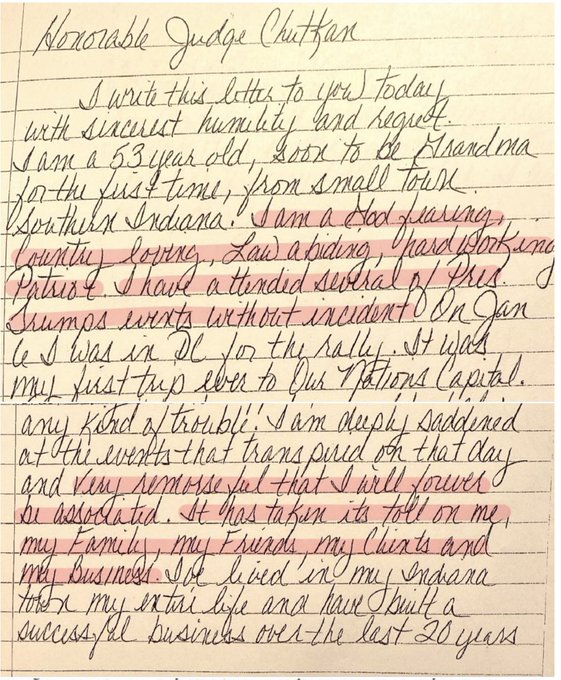 Honorable Judge Chutkan
I write this letter to you today
with sincerest humility and regret.
I am a 53 year old, soon to be Grandma
for the first time, from small town
Southern Indiana. I am a God fearing,
Country loving, Law abiding, hardworking
Patriot. I have attended several of Pres.
Trumps events without incident. On Jan
6 I was in DC for the rally. It was
my first trip ever to Our Nations Capital.
any kind of trouble! I am deeply saddened
at the events that transpired on that day
and very remorseful that I will forever
be associated. It has taken its toll on me,
my Family, my Friends, my Clients and
my Business. I've lived in my Indiana
town my entire life and have built a
successful business over the last 20 years